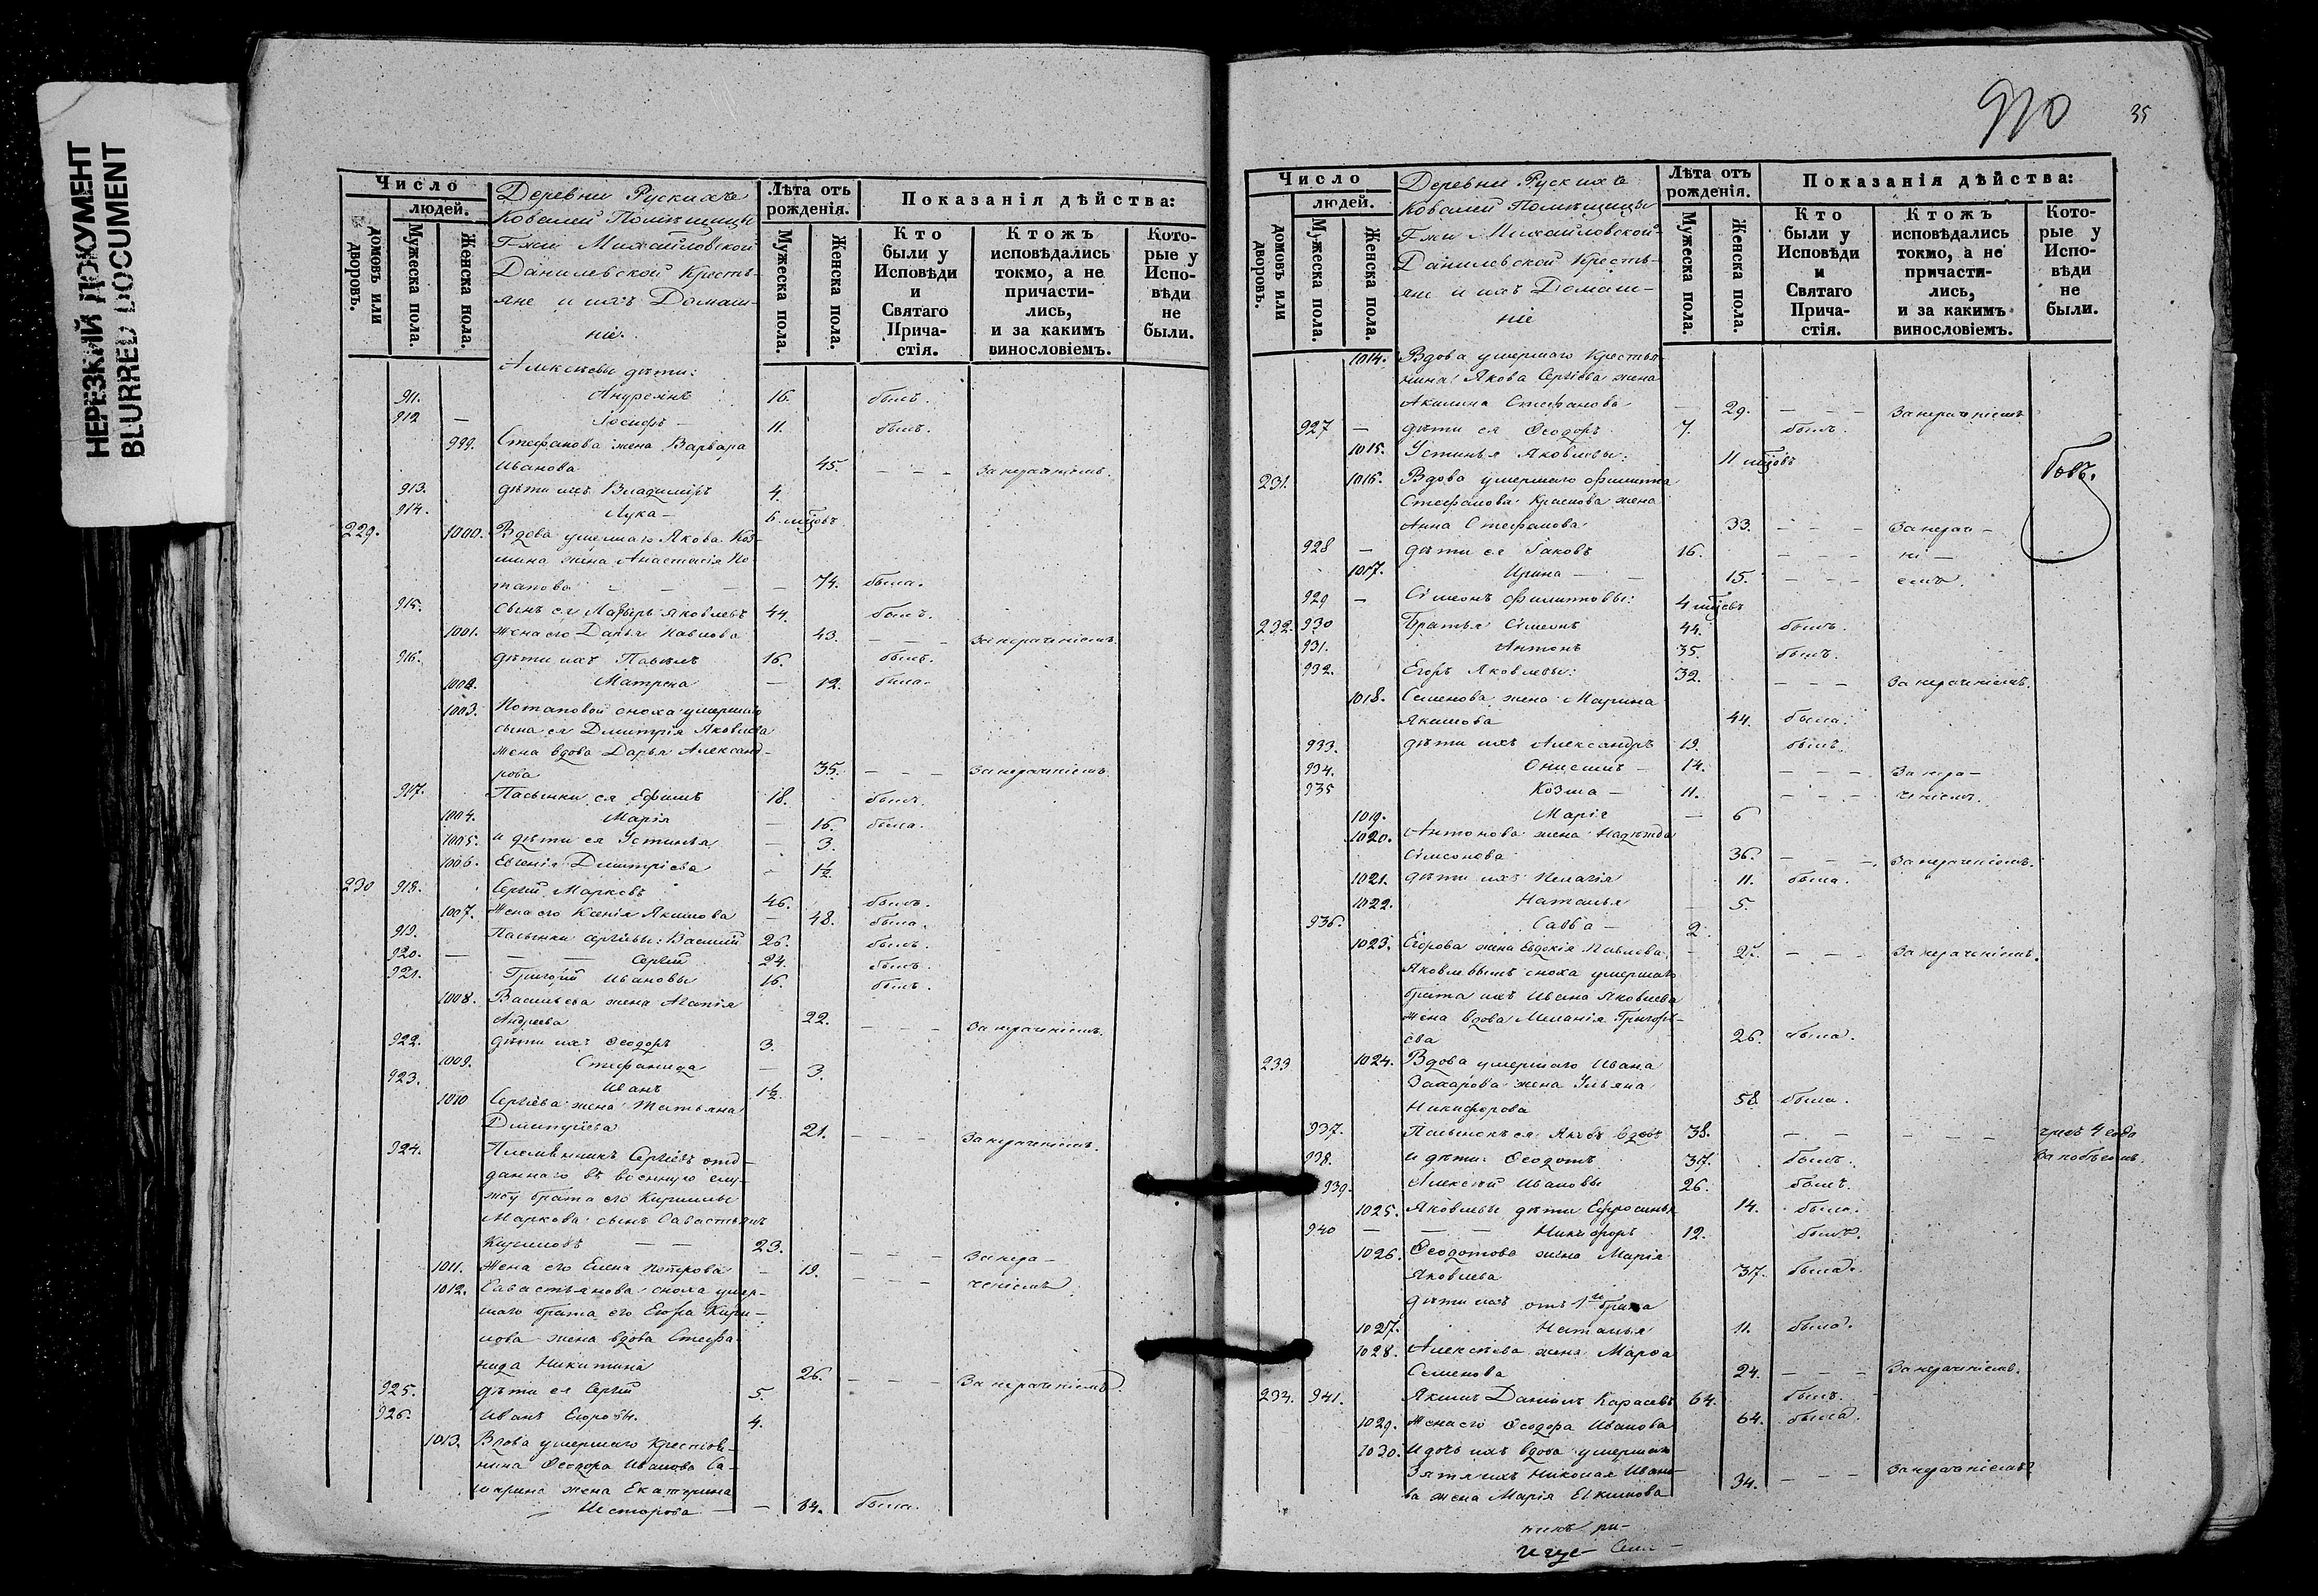 НЕРЕЗКИЙ ДОКУМЕНТ
BLURRED DOCUMENT
Число
людей.
домовъ или дворовъ.
Мужеска пола.
Женска пола.
Деревни Рускихъ
Ковалей Помѣщицы
Г-жи Михайловской
Данилевской Крестья-
яне и ихъ Домаш-
ніе.
Лѣта отъ рожденія.
Мужеска пола.
Женска пола.
Показанія дѣйства:
Кто были у Исповѣди и Святаго Прича- стія.
Ктожъ исповѣдались токмо, а не причасти- лись, и за какимъ винословіемъ.
Кото- рые у Испо- вѣди не были.
Алексѣевы дѣти:
911. Андреянъ 16. былъ.
912 — Іосифъ — 11. былъ.
999. Стефанова жена Варвара
Иванова 45. — — — За нерачніемъ.
913. дѣти ихъ Владиміръ 4.
914. Лука — 6 мѣсцовъ
229. 1000. Вдова умершаго Якова Коз-
мина жена Анастасія По-
тапова — — — — 74. была.
915. Сынъ ея Лазарь Яковлевъ 44. былъ.
1001. Жена его Дарья Павлова 43. — — — За нераченіемъ.
916. дѣти ихъ Павелъ 16. былъ.
1002. Матрена — 12. была.
1003. Потаповой сноха умершаго
сына ея Димитрія Яковлева
жена вдова Дарья Александ-
рова 35. — — — За нераченіемъ.
917. Пасынки ея Ефимъ 18. былъ.
1004. Марія — 16. была.
1005. и дѣти ея Устинья — 3.
1006. Евгенія Димитріева - 1½
230 918. Сергій Марковъ 46. былъ.
1007. Жена его Ксенія Якимова — 48. была.
919. Пасынки Сергіевы: Василій 26. былъ.
920. — — — Сергій 24. былъ.
921. Григорій Ивановы 16. былъ.
1008. Васильева жена Агапія
Андреева 22. — — — За нераченіемъ.
922. дѣти ихъ Ѳеодоръ 3.
1009. Стефанида — 3.
923. Иванъ 1½
1010 Сергіева жена Татьяна
Димитріева 21. — — — За нераченіемъ.
924. Племянникъ Сергіевъ отд-
даннаго въ военную слу-
жбу брата его Кириллы
Маркова сынъ Савастьянъ
Кириловъ — — 23. — — — За нера-
1011. Жена его Елена Петрова — 19. — — — ченіемъ.
1012. Савастьянова сноха умер-
шаго брата его Егора Кири-
лова жена вдова Стефа-
нида Никитина 26. — — — За нераченіемъ.
925. дѣти ея Сергій 5.
926. Иванъ Егоровы. 4.
1013. Вдова умершаго крестья-
нина Ѳеодора Иванова
жена Екатерина
Несторова — — 64. была.
910
35
Число
людей.
домовъ или дворовъ.
Мужеска пола.
Женска пола.
Деревни Рускихъ
Ковалей Помѣщицы
Г-жи Михайловской-
Данилевской Кресть-
яне и ихъ Домаш-
ніе
Лѣта отъ рожденія.
Мужеска пола.
Женска пола.
Показанія дѣйства:
Кто были у Исповѣди и Святаго Прича- стія.
Ктожъ исповѣдались токмо, а не причасти- лись, и за какимъ винословіемъ.
Кото- рые у Испо- вѣди не были.
1014. Вдова умершаго Крестья-
нина Якова Сергіева жена
Акилина Стефанова — 29. — — — За нераченіемъ
927 — дѣти ея Ѳеодоръ 7. былъ.
1015. Устинья Яковлевы: 11 мѣсцовъ
231. 1016. Вдова умершаго Филиппа
Стефанова Краснова жена
Анна Стефанова 33. — — — За нерач-
928 — дѣти ея Іаковъ 16. — — — ні —
1017. Ирина — — 15. — — — емъ.
929 — Сімеонъ Филипповы: 4 мѣсцовъ
232. 930 Братья Сімеонъ 44. былъ.
931. Антонъ 35. былъ.
932. Егоръ Яковлевы: 32. — — — За нераченіемъ.
1018. Семенова жена Марина
Якимова 44. была.
933. дѣти ихъ Александръ 19. былъ.
934. Онисимъ — 14. — — — За нера-
935 Козма — 11. — — — ченіемъ.
1019. Марія — 6
1020. Антонова жена Надежда
Сімеонова 36. — — — За нераченіемъ.
1021. дѣти ихъ Пелагія 11. была.
1022. Наталья — 5.
936. Савва — 2
1023. Егорова жена Евдокія Павлова — 27. — — — За нераченіемъ.
Яковлевымъ сноха умершаго
брата ихъ Ивана Яковлева
жена вдова Меланія Григорь-
ева 26. была.
233 1024. Вдова умершаго Ивана
Захарова жена Ульяна
Никифорова 58. была.
937. Пасынокъ ея Яковъ вдовъ 38. — — — — — —
938. и дѣти: Ѳеодотъ 37. былъ. За побѣгомъ.
939. Алексѣй Ивановы 26. былъ.
1025. Яковлевы дѣти Ефросинья 14. была.
940 — — — Никифоръ 12. былъ.
1026. Ѳеодотова жена Марія
Яковлева 37. была.
дѣти ихъ отъ 1го брака
1027. Наталья 11. была.
1028. Алексѣева жена Марѳа
Семенова 24. — — — За нераченіемъ.
234. 941. Якимъ Даниловъ Карасевъ 64. былъ.
1029. Жена его Ѳеодора Иванова 64. была.
1030. И дочь ихъ вдова умершаго
Зятя ихъ Николая Ивано-
ва жена Марія Екимова 34. — — — За нераченіемъ